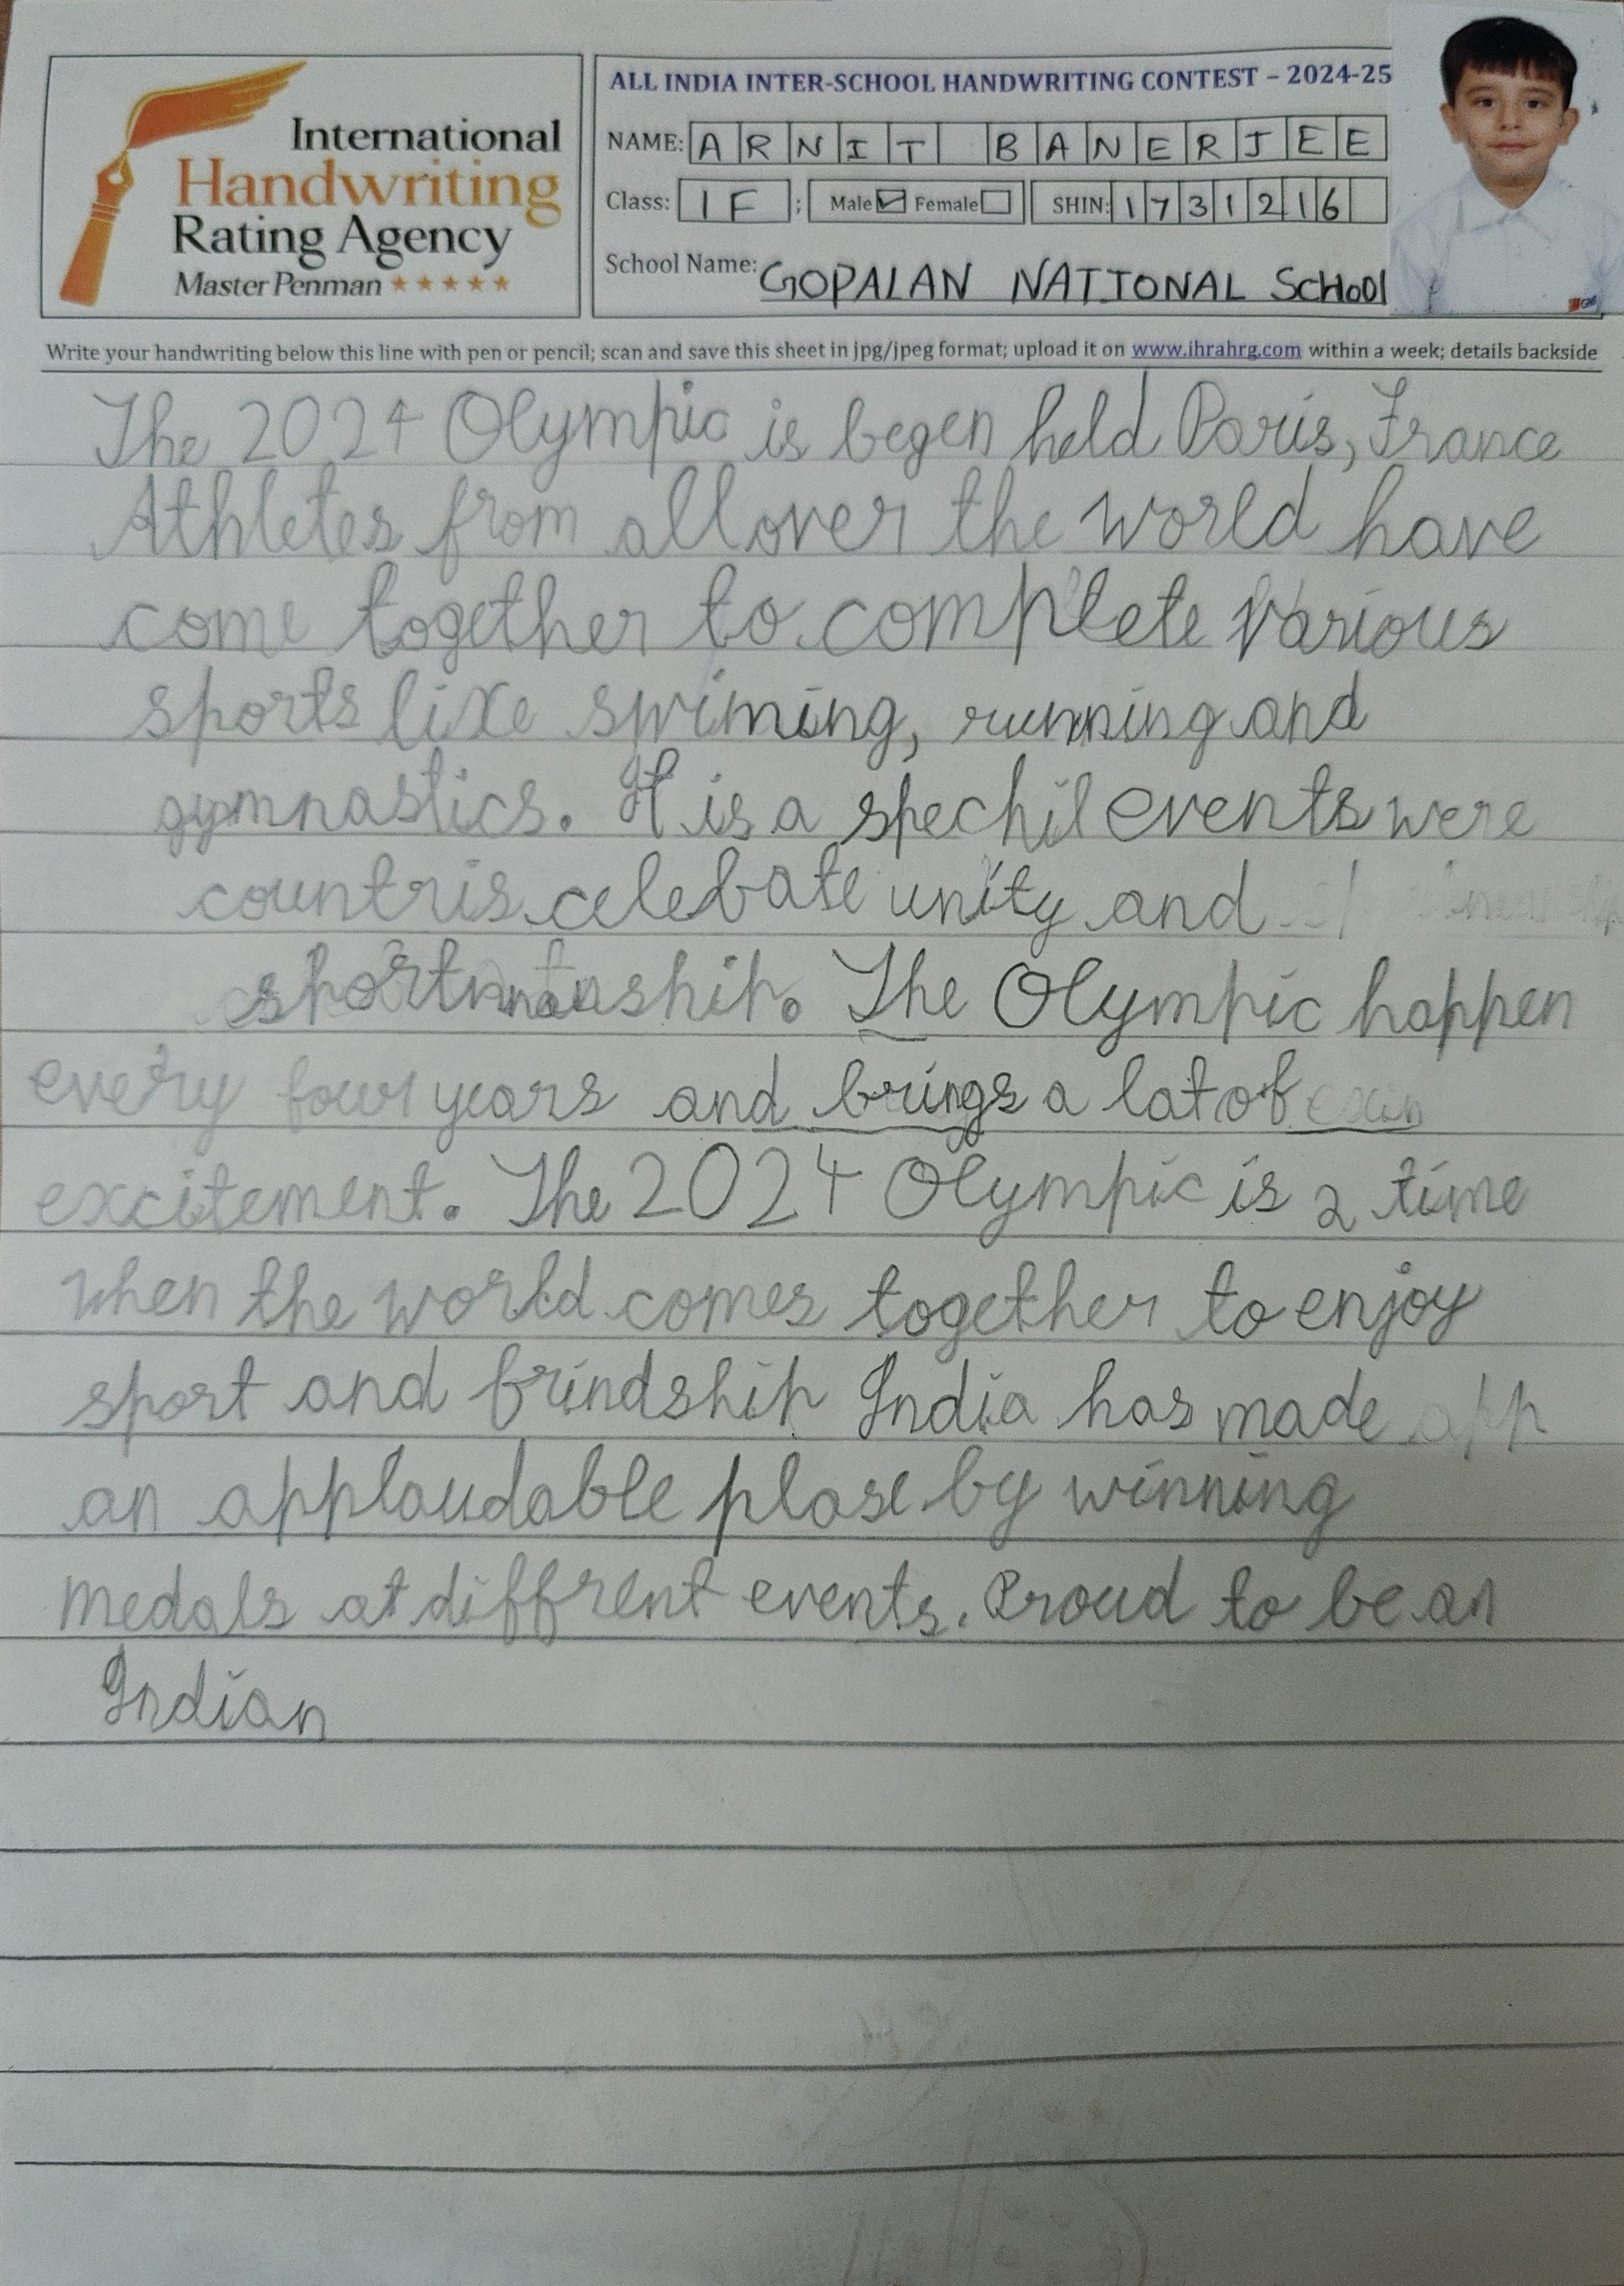 International
Handwriting
Rating Agency
Master Penman
ALL INDIA INTER-SCHOOL HANDWRITING CONTEST – 2024-25
NAME: ARNIT BANERJEE
Class: 1F ; Male Female SHIN: 1731216
School Name: GOPALAN NATIONAL SCHOOl
Write your handwriting below this line with pen or pencil; scan and save this sheet in jpg/jpeg format; upload it on www.ihrahrg.com within a week; details backside
The 2024 Olympic is begen held Paris, France
Athletes from all over the world have
come together to complete Various
sports like swiming, running and
gymnastics. It is a spechil events were
countris celebate unity and
The Olympic happen
every four years and brings a lat of
excitement. The 2024 Olympic is a time
when the world comes together to enjoy
sport and frindship India has made app
an applaudable plase by winning
medals at diffrent events. Proud to be an
Indian